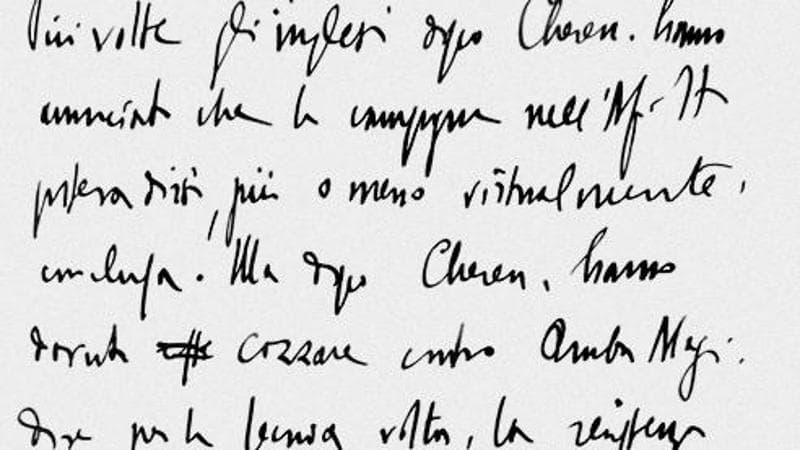 Più volte gli inglesi dopo Cheren. hanno
annunciato che la campagna nell'Af. It
poteva dirsi, più o meno virtualmente,
conclusa. Ma dopo Cheren, hanno
dovuto cozzare contro Amba Alagi.
dove per la seconda volta, la resistenza